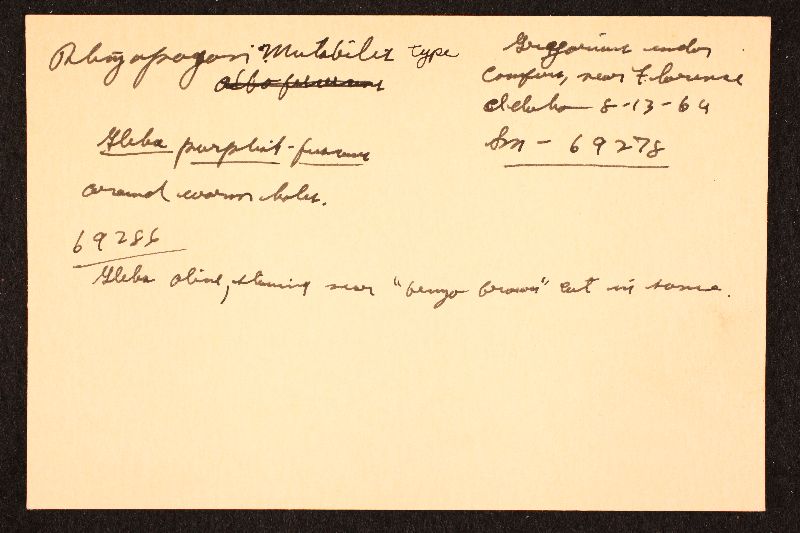 Rhizopogon Mutabilis type
albo fuscens
Gleba purplish-fuscous
around worm holes.
69286
Gleba olive, staining near "benzo brown" cut in some.
Gregarious under
conifers, near Florence
Idaho 8-13-64
Sm - 69278